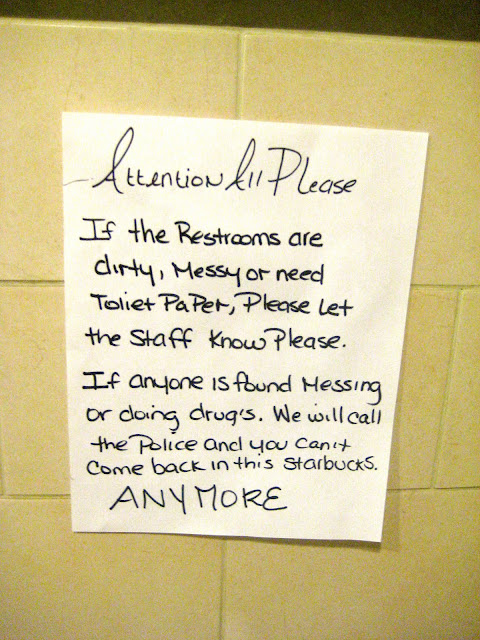 Attention All Please
If the Restrooms are
dirty, Messy or need
Toliet Paper, Please Let
the Staff Know Please.
If anyone is found Messing
or doing drug's. We will call
the Police and you Can't
Come back in this Starbucks.
ANYMORE